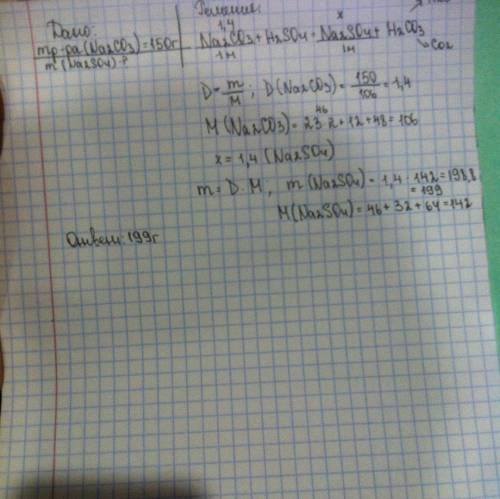 Дано:
mр-ра(Na2CO3)=150г
m(Na2SO4)-?
Решение:
1,4 x
Na2CO3+H2SO4=Na2SO4+H2CO3
1м 1м CO2
D=m/M; D(Na2CO3)=150/106=1,4
46
M(Na2CO3)=23·2+12+48=106
x=1,4(Na2SO4)
m=D·M, m(Na2SO4)=1,4·142=198,8
=199
M(Na2SO4)=46+32+64=142
Ответ:199г